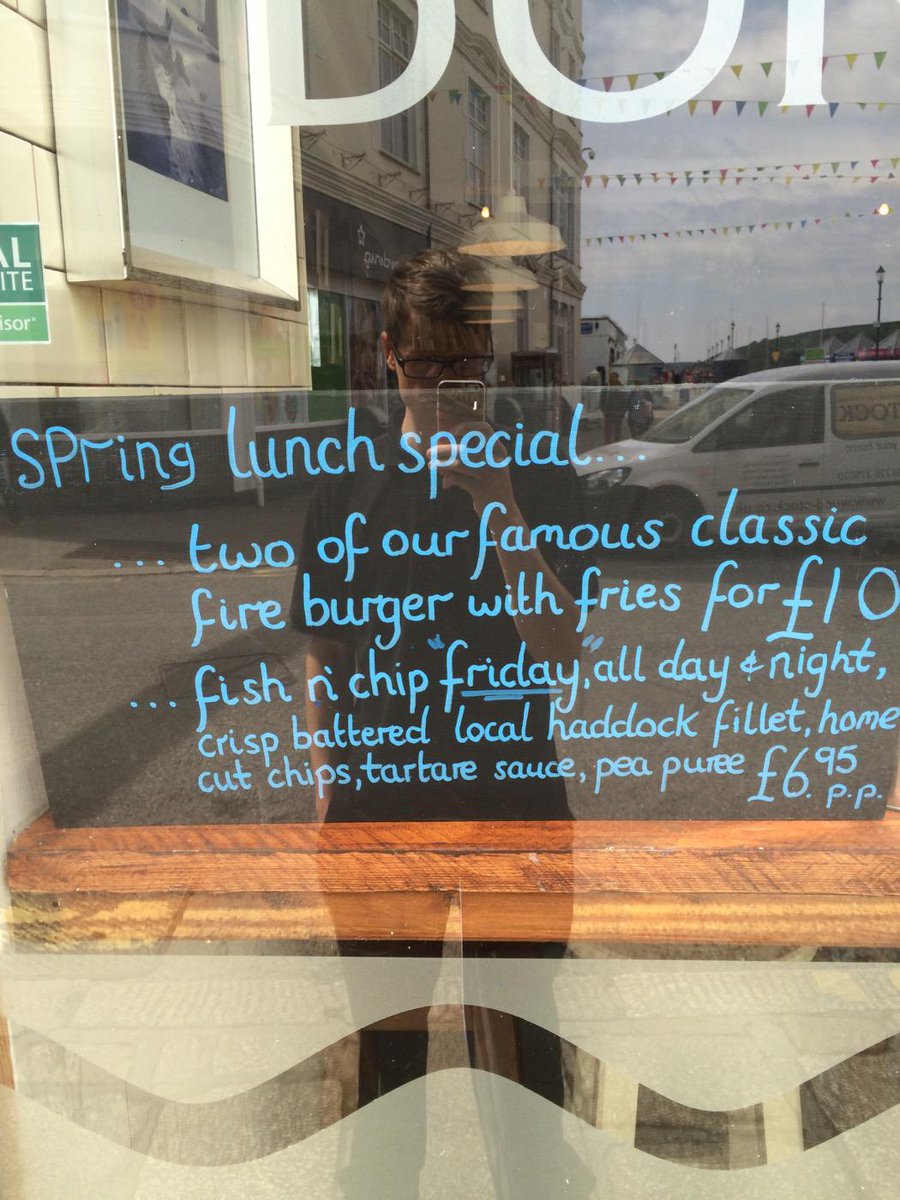 SPring lunch special...
... two of our famous classic
fire burger with fries for £10
... fish n' chip "friday", all day & night,
crisp battered local haddock fillet, home
cut chips, tartare sauce, pea puree £6.95 p.p.